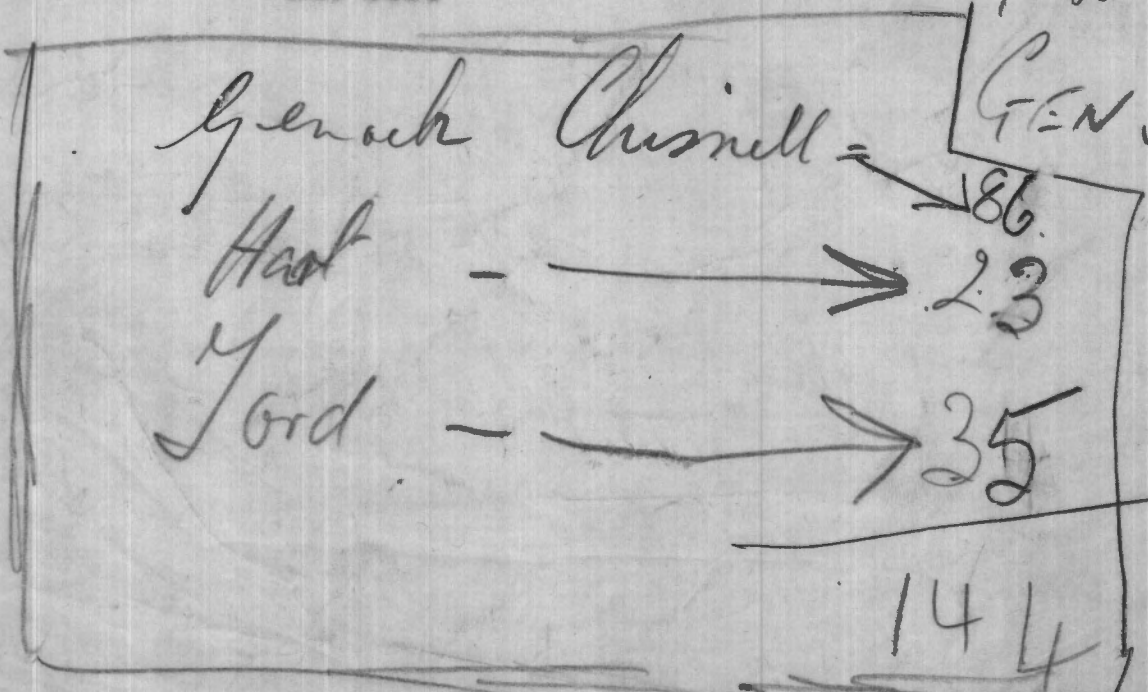 GEN
Genoch Chisnell = 86.
Hart - 23
Yord - 35
144